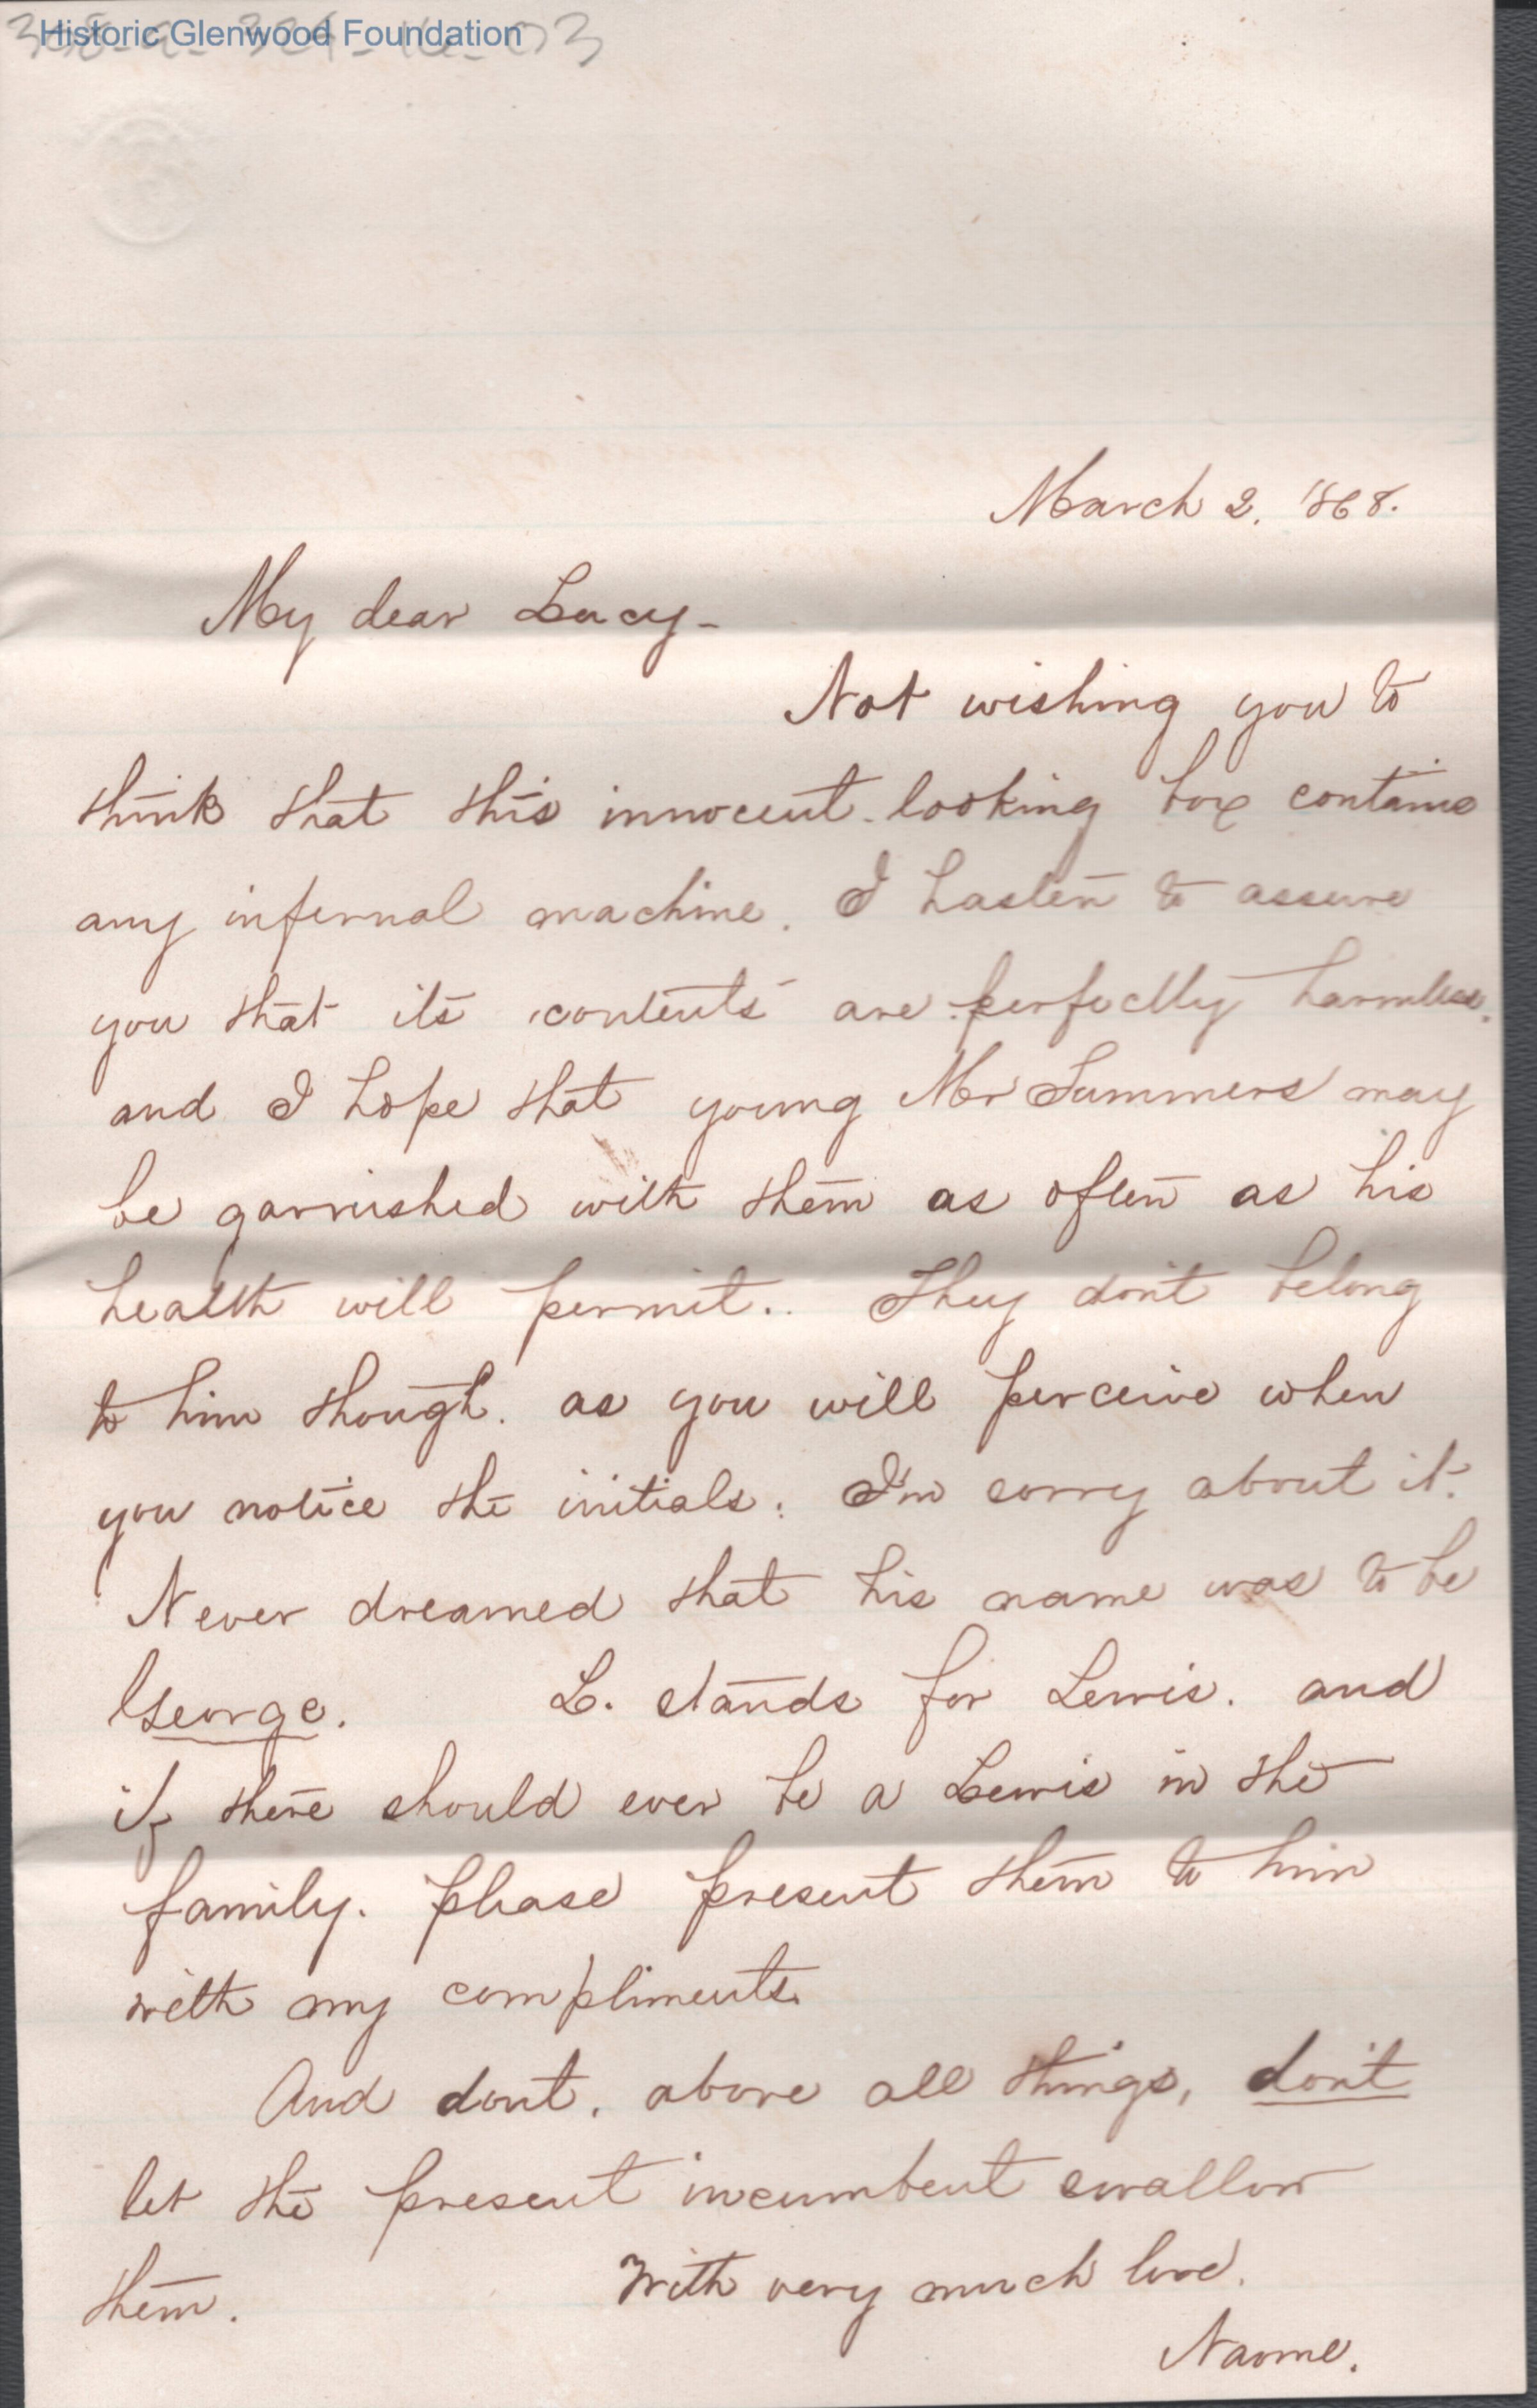 Historic Glenwood Foundation
March 2. 1868.
My dear Lucy-
Not wishing you to
think that this innocent-looking box contains
any infernal machine. I hasten to assure
you that its contents are perfectly harmless.
and I hope that young Mr Summers may
be garnished with them as often as his
health will permit.. They don't belong
to him though. as you will perceive when
you notice the initials. I'm sorry about it.
Never dreamed that his name was to be
George. L. stands for Lewis. and
if there should ever be a Lewis in the
family. please present them to him
with my compliments.
And dont, above all things, don't
let the present incumbent swallow
them. With very much love.
Naome.